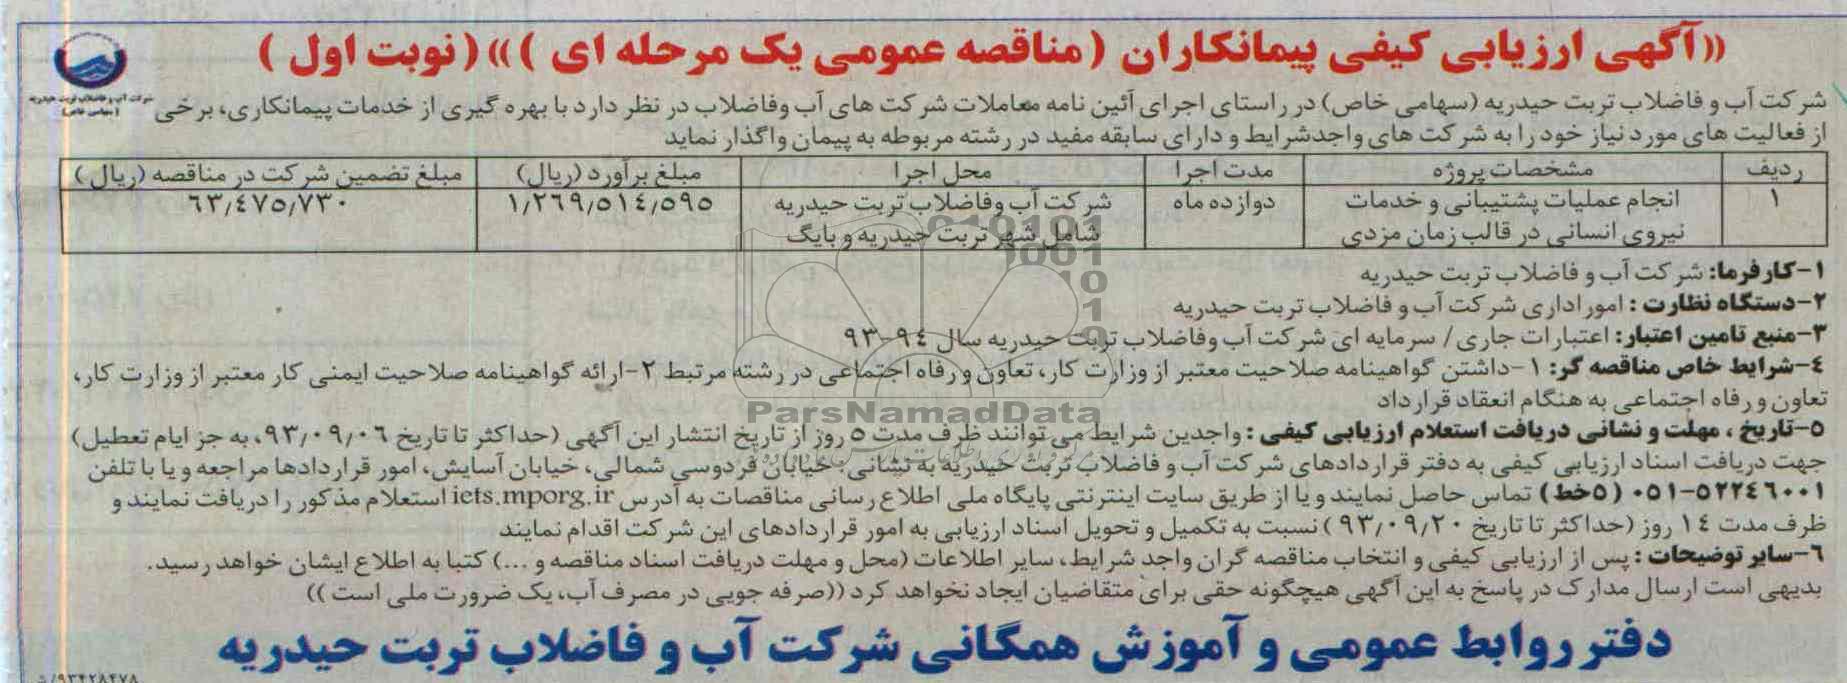 ((آگهی ارزیابی کیفی پیمانکاران (مناقصه عمومی یک مرحله ای ))) (نوبت اول )
شرکت آب و فاضلاب تربت حیدریه
(سهامی خاص)
شرکت آب و فاضلاب تربت حیدریه (سهامی خاص) در راستای اجرای آئین نامه معاملات شرکت های آب وفاضلاب در نظر دارد با بهره گیری از خدمات پیمانکاری، برخی
از فعالیت های مورد نیاز خود را به شرکت های واجدشرایط و دارای سابقه مفید در رشته مربوطه به پیمان واگذار نماید
ردیف مشخصات پروژه مدت اجرا محل اجرا مبلغ برآورد (ریال) مبلغ تضمین شرکت در مناقصه (ریال)
۱ انجام عملیات پشتیبانی و خدمات دوازده ماه شرکت آب وفاضلاب تربت حیدریه ۱٫۲۶۹٫۵۱٤٫۵۹۵ ۶۳٫٤۷۵٫۷۳۰
نیروی انسانی در قالب زمان مزدی شامل شهر تربت حیدریه و بایگ
۱-کارفرما: شرکت آب و فاضلاب تربت حیدریه
۲-دستگاه نظارت : امور اداری شرکت آب و فاضلاب تربت حیدریه
۳-منبع تامین اعتبار: اعتبارات جاری/ سرمایه ای شرکت آب وفاضلاب تربت حیدریه سال ۹٤-۹۳
٤-شرایط خاص مناقصه گر: ۱-داشتن گواهینامه صلاحیت معتبر از وزارت کار، تعاون و رفاه اجتماعی در رشته مرتبط ۲-ارائه گواهینامه صلاحیت ایمنی کار معتبر از وزارت کار،
تعاون و رفاه اجتماعی به هنگام انعقاد قرارداد
ParsNamadData
۵-تاریخ ، مهلت و نشانی دریافت استعلام ارزیابی کیفی : واجدین شرایط می توانند ظرف مدت ۵ روز از تاریخ انتشار این آگهی (حداکثر تا تاریخ ۹۳٫۰۹٫۰۶، به جز ایام تعطیل)
جهت دریافت اسناد ارزیابی کیفی به دفتر قراردادهای شرکت آب و فاضلاب تربت حیدریه به نشانی: خیابان فردوسی شمالی، خیابان آسایش، امور قراردادها مراجعه و یا با تلفن
۵۲۲٤۶۰۰۱-۰۵۱ (۵خط) تماس حاصل نمایند و یا از طریق سایت اینترنتی پایگاه ملی اطلاع رسانی مناقصات به آدرس iets.mporg.ir استعلام مذکور را دریافت نمایند و
ظرف مدت ۱٤ روز (حداکثر تا تاریخ ۹۳٫۰۹٫۲۰ ) نسبت به تکمیل و تحویل اسناد ارزیابی به امور قراردادهای این شرکت اقدام نمایند
۶-سایر توضیحات : پس از ارزیابی کیفی و انتخاب مناقصه گران واجد شرایط، سایر اطلاعات (محل و مهلت دریافت اسناد مناقصه و ...) کتبا به اطلاع ایشان خواهد رسید.
بدیهی است ارسال مدارک در پاسخ به این آگهی هیچگونه حقی برای متقاضیان ایجاد نخواهد کرد ((صرفه جویی در مصرف آب، یک ضرورت ملی است ))
دفتر روابط عمومی و آموزش همگانی شرکت آب و فاضلاب تربت حیدریه